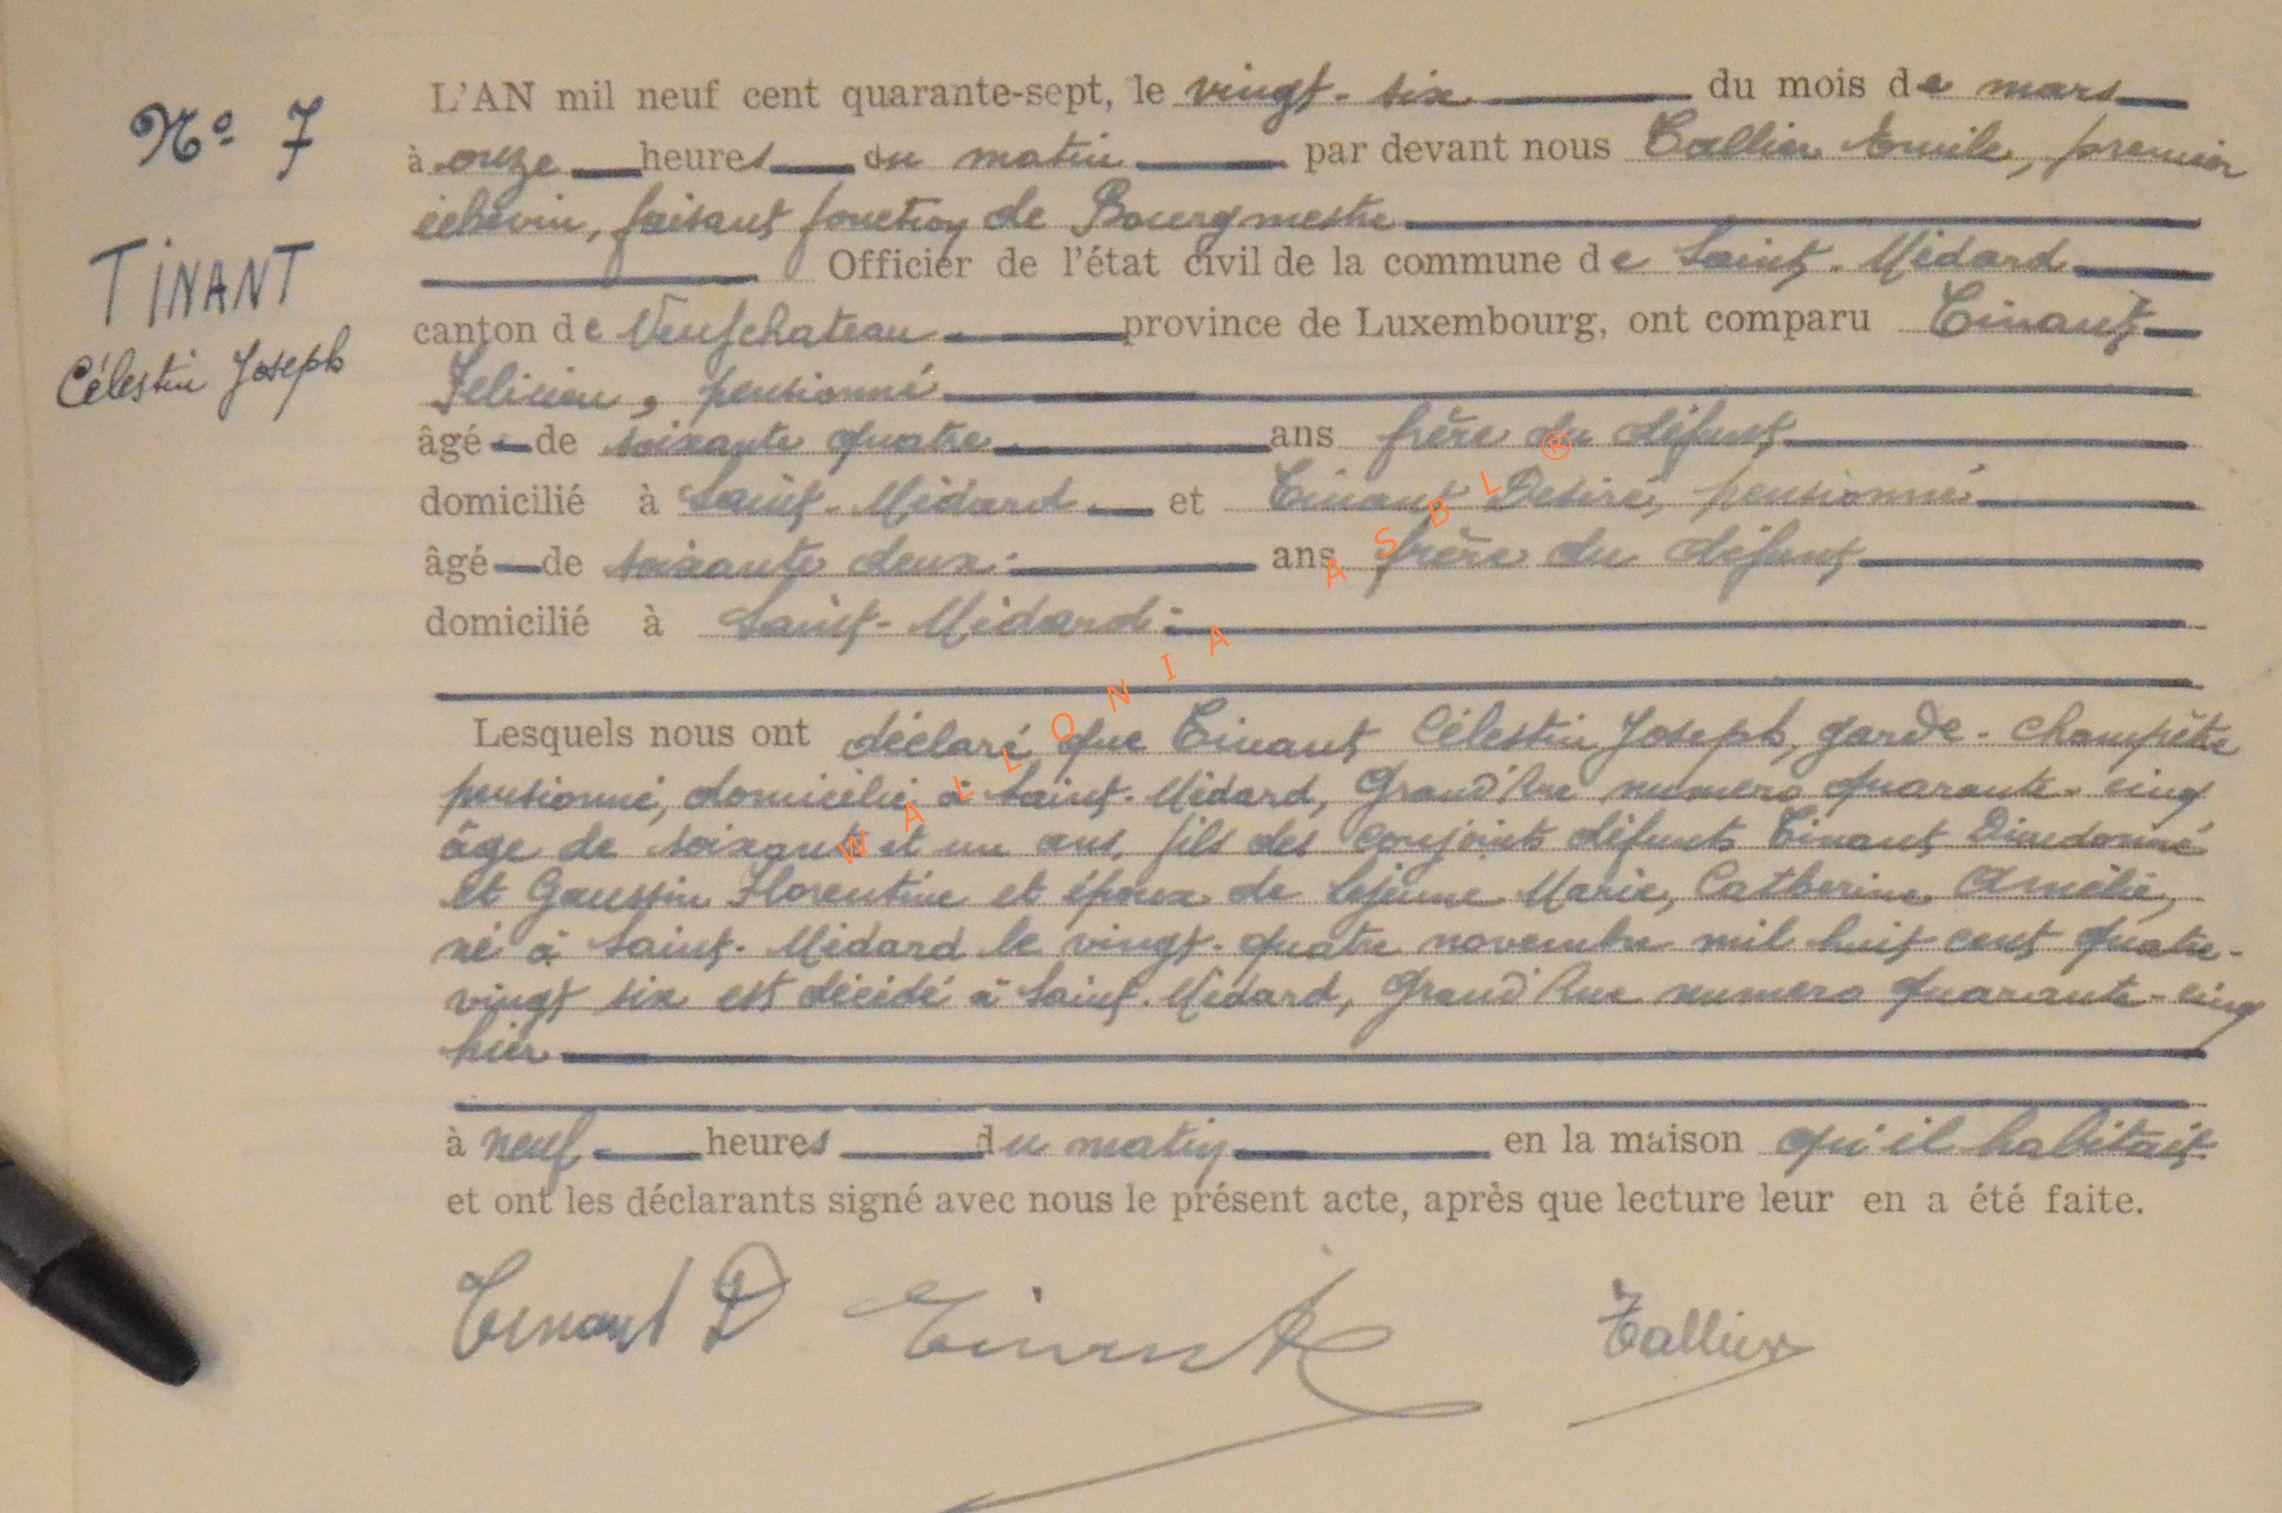 Nº 7
TINANT
Célestin Joseph
L'AN mil neuf cent quarante-sept, le vingt-six du mois de mars
à onze heures du matin par devant nous Tallier Emile, premier
échevin, faisant fonction de Bourgmestre
Officier de l'état civil de la commune de Saint-Médard
canton de Neufchateau province de Luxembourg, ont comparu Tinant
Felicien, pensionné
âgé de soixante quatre ans frère du défunt
domicilié à Saint-Médard et Tinant Desiré, pensionné
âgé de soixante deux ans frère du défunt
domicilié à Saint-Médard
Lesquels nous ont déclaré que Tinant Célestin Joseph, garde-champêtre
pensionné, domicilié à Saint-Médard, Grand'Rue numero quarante-cinq
âge de soixante et un ans, fils des conjoints défunts Tinant Dieudonné
et Gaussin Florentine et époux de Lejeune Marie, Catherine Amélie,
né à Saint-Médard le vingt-quatre novembre mil huit cent quatre-
vingt six est décédé à Saint-Médard, Grand'Rue numero quarante-cinq
hier
à neuf heures du matin en la maison qu'il habitait
et ont les déclarants signé avec nous le présent acte, après que lecture leur en a été faite.
Tinant D Tinant F Tallier
WALLONIA ASBL ®